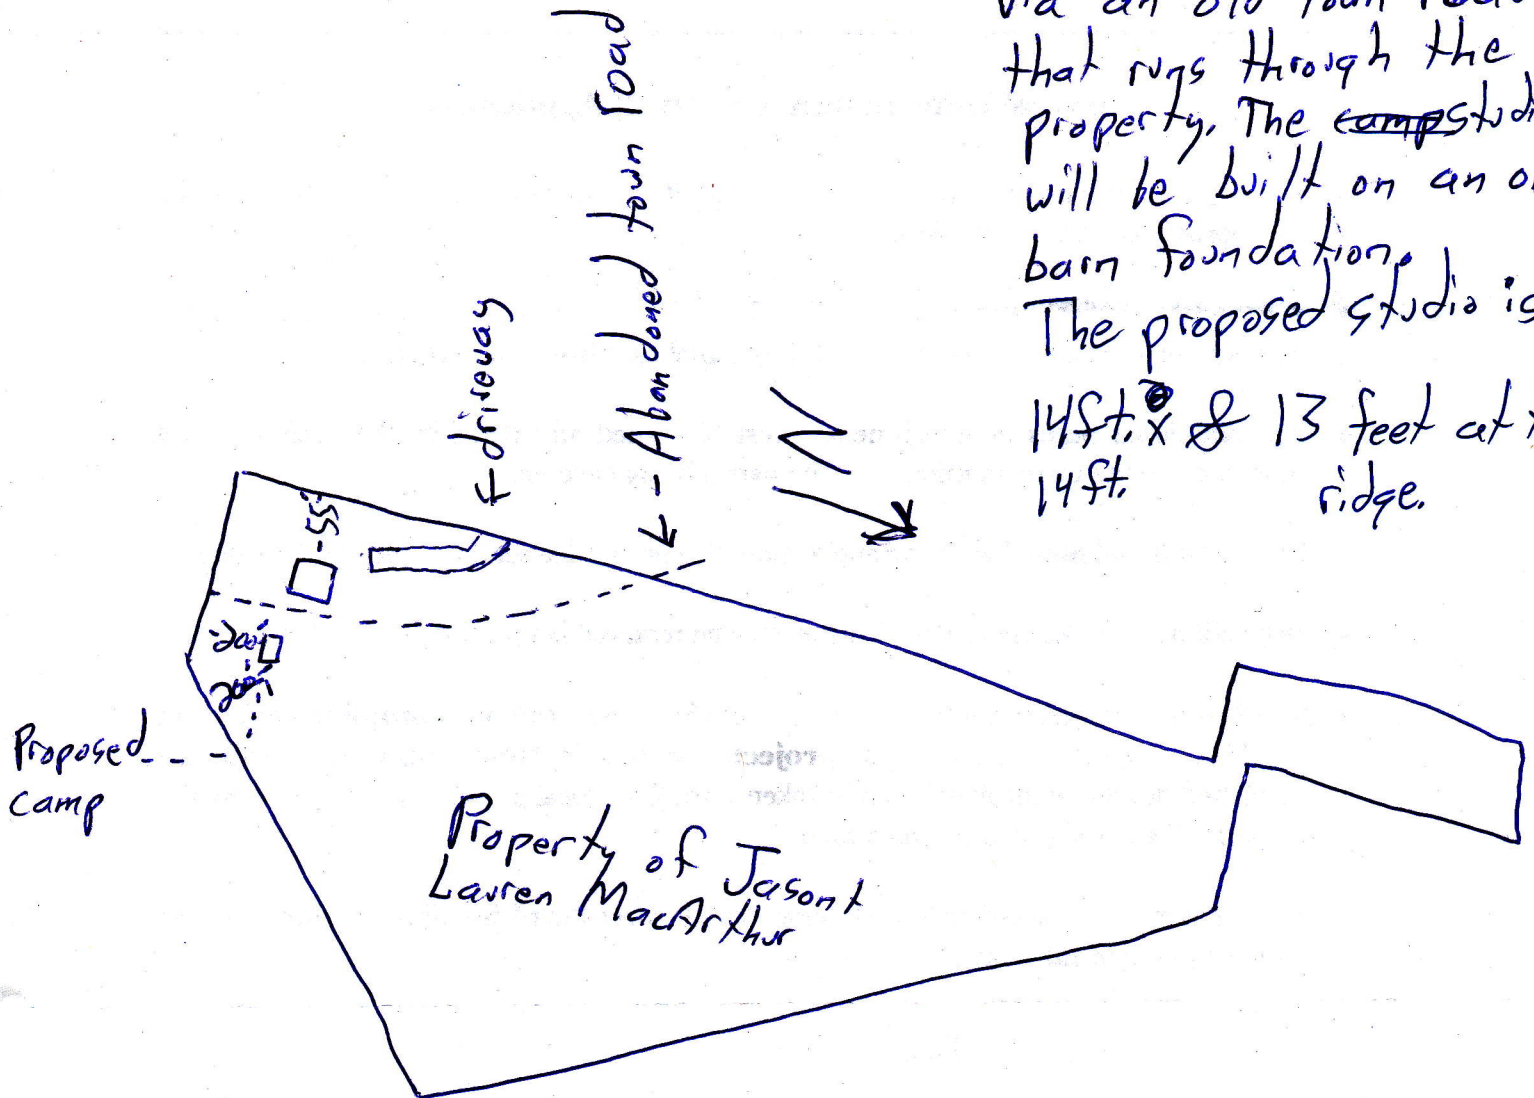 via an old town road
that runs through the
property. The camp studi
will be built on an ol
barn foundation.
The proposed studio is
14ft. x & 13 feet at t
14ft. ridge.
← driveway
← - Abandoned town road
N
-55'
-200'
200'
Proposed
camp
Property of Jason +
Lauren MacArthur